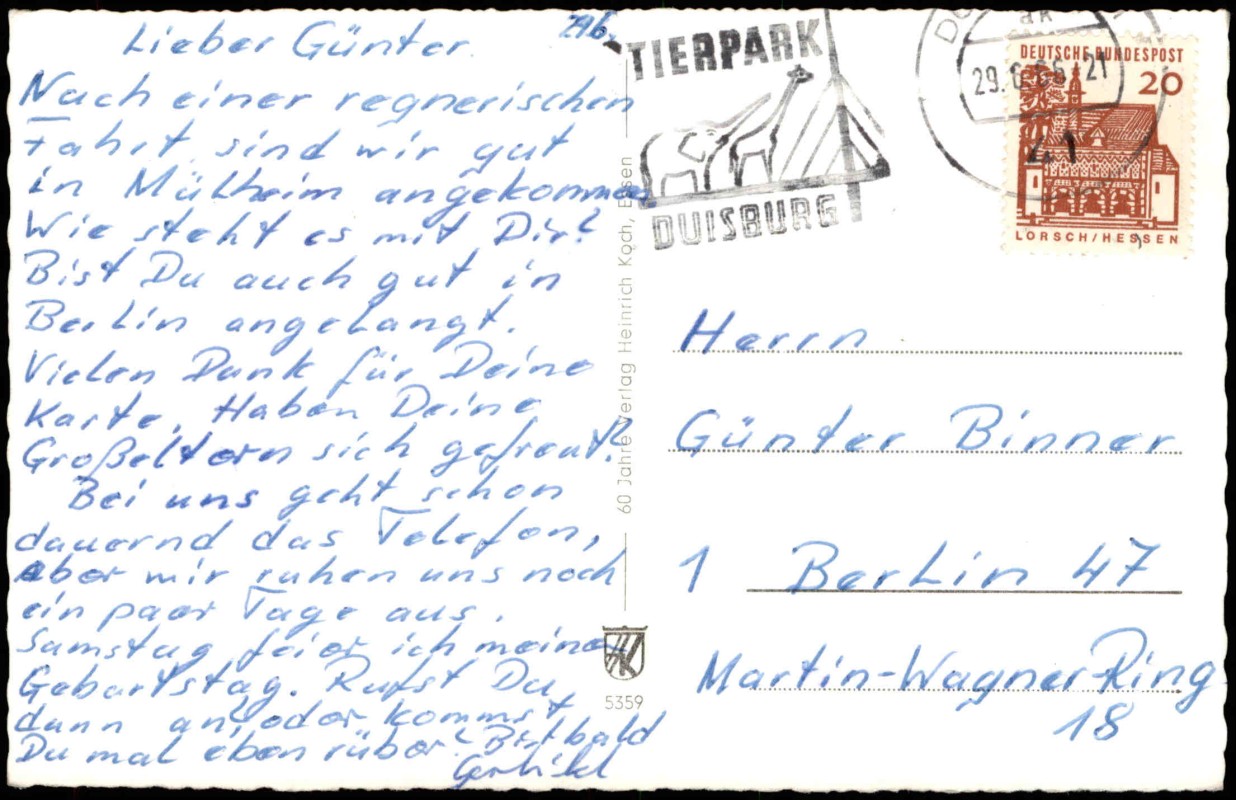 Lieber Günter.
Nach einer regnerischen
Fahrt sind wir gut
in Mülheim angekommen
Wie steht es mit Dir?
Bist Du auch gut in
Berlin angelangt.
Vielen Dank für Deine
Karte. Haben Deine
Großeltern sich gefreut?
Bei uns geht schon
dauernd das Telefon,
aber wir ruhen uns noch
ein paar Tage aus.
Samstag feier ich meinen
Geburtstag. Rufst Du
dann an, oder kommst
Du mal eben rüber? Bis bald
60 Jahre Verlag Heinrich Koch, Essen
HK
5359
TIERPARK
DUISBURG
29.6.66-21
41
DEUTSCHE BUNDESPOST
20
LORSCH/HESSEN
Herrn
Günter Binner
1 Berlin 47
Martin-Wagner-Ring
18